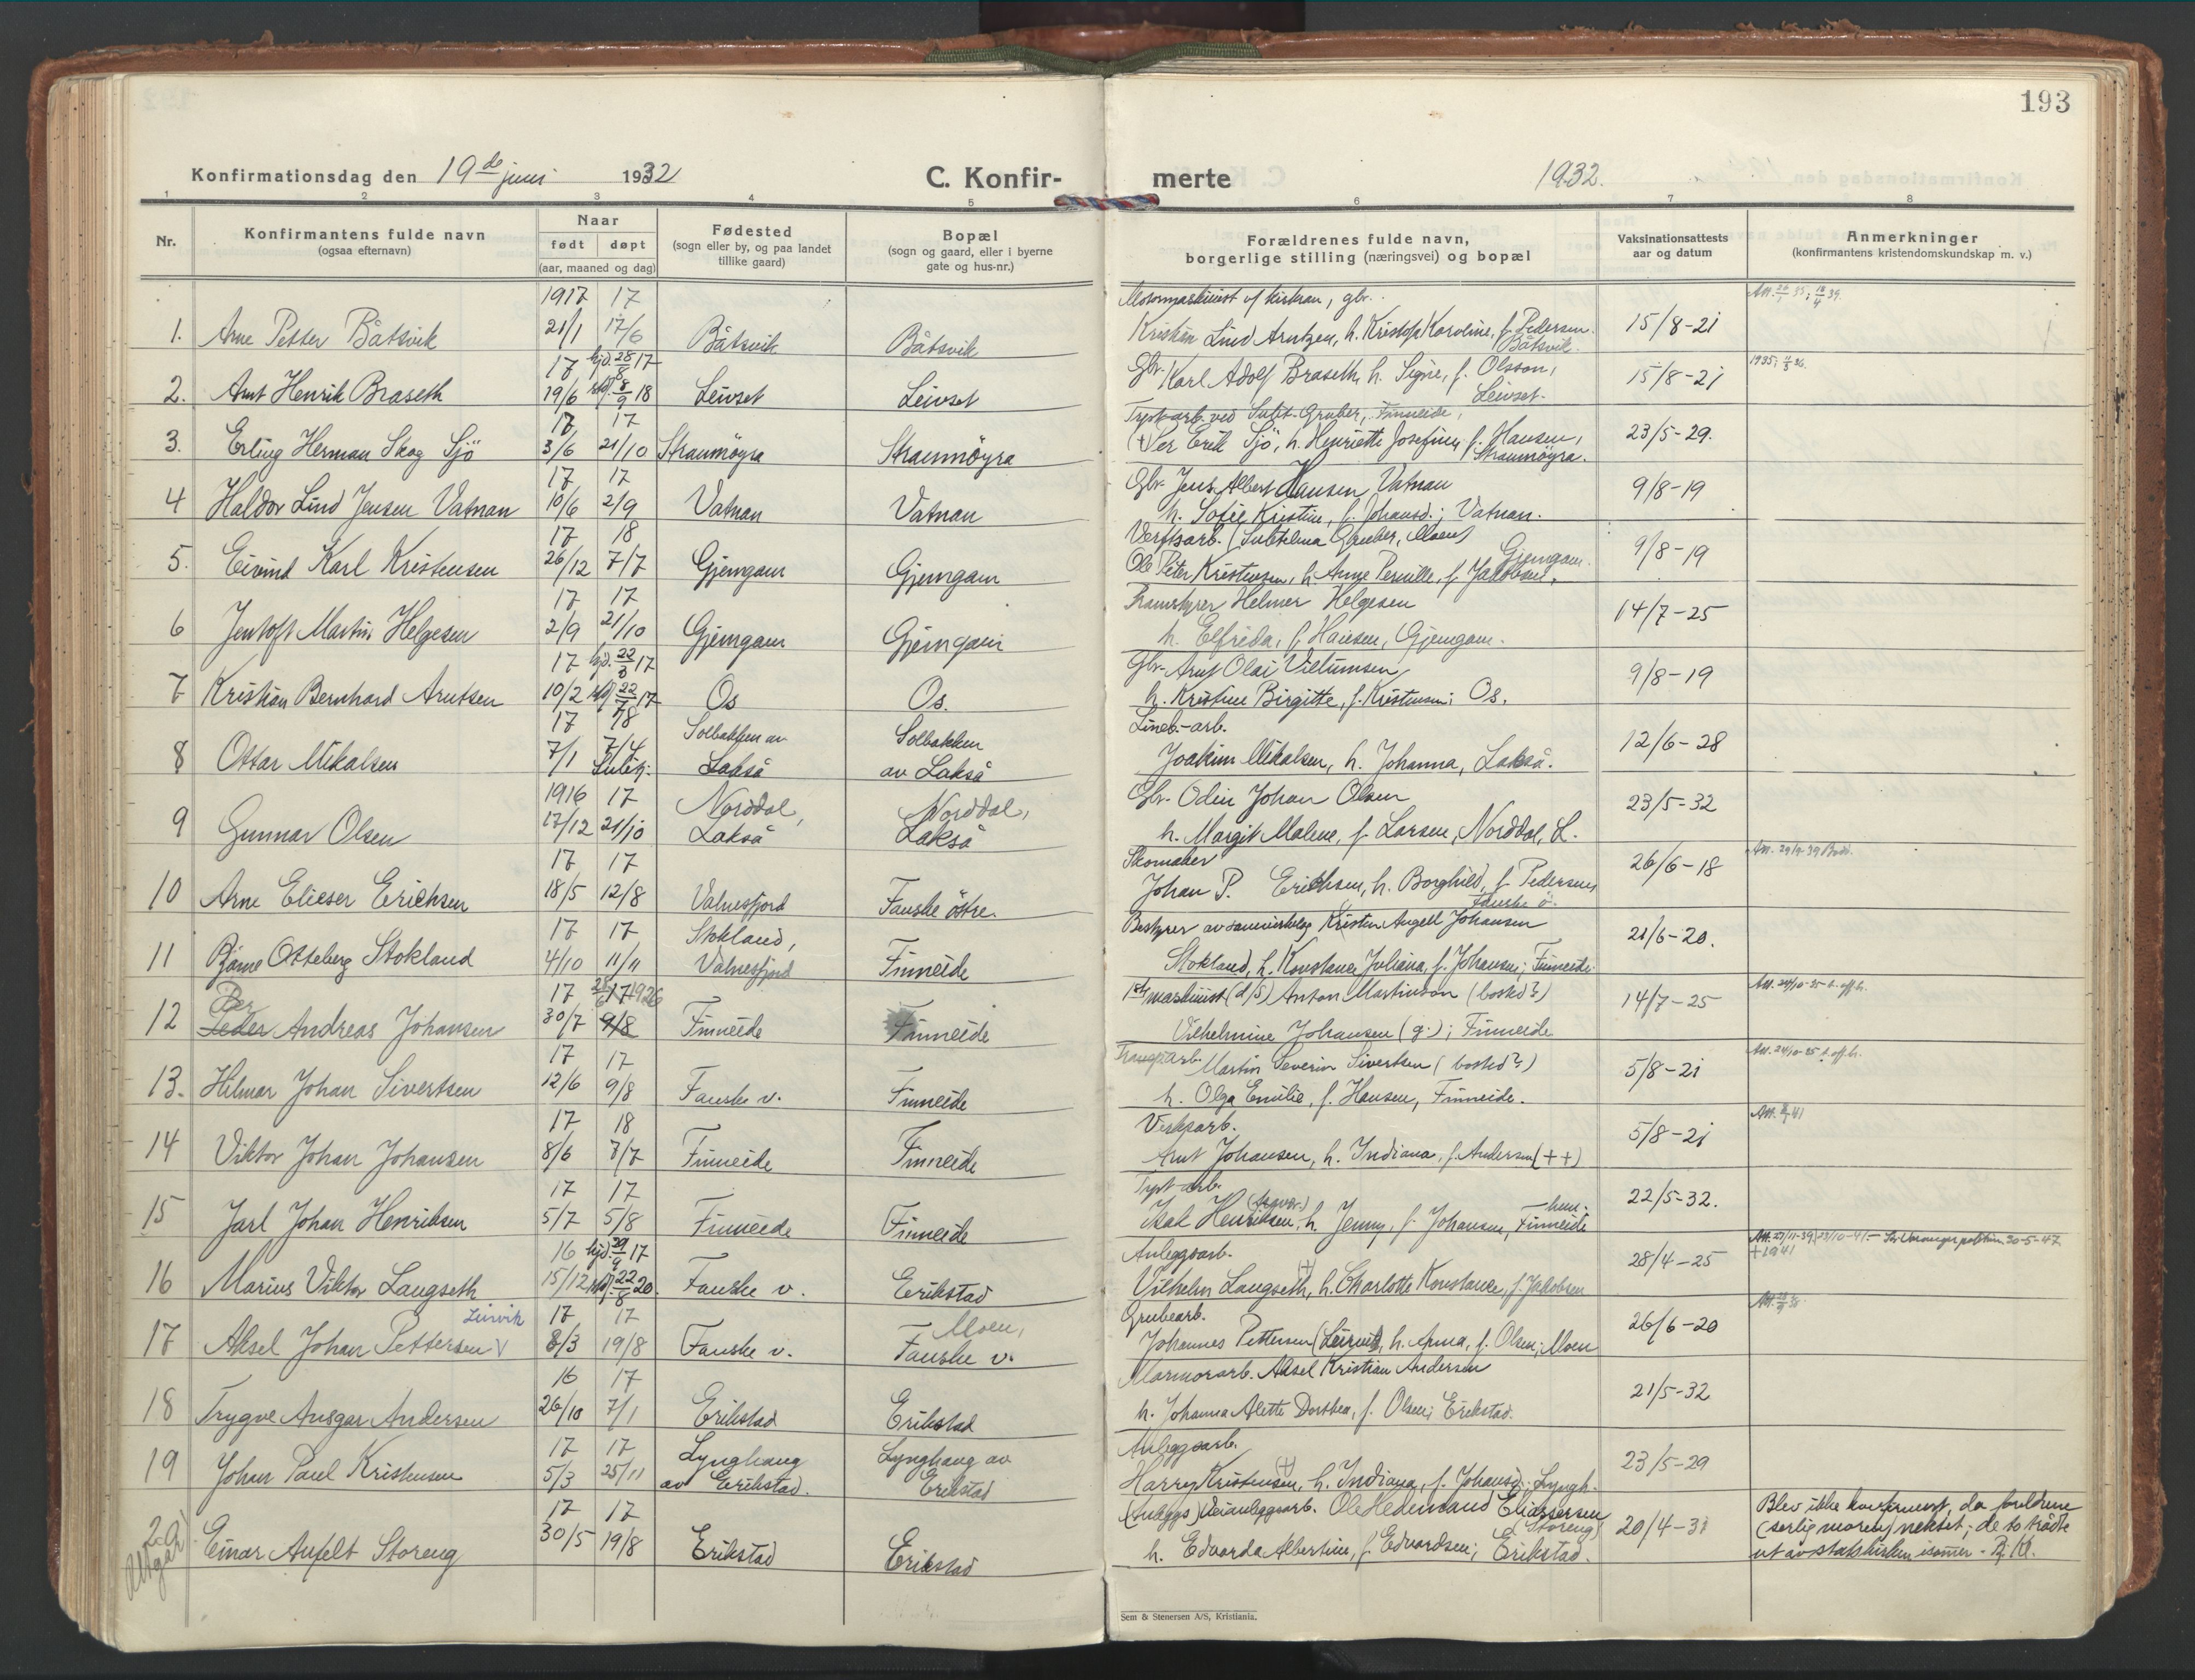 193
Konfirmationsdag den 19de juni 1932
C. Konfir-
merte
1932.
1 2 3 4 5 6 7 8
Nr.
Konfirmantens fulde navn
(ogsaa efternavn)
Naar
født døpt
(aar, maaned og dag)
Fødested
(sogn eller by, og paa landet
tillike gaard)
Bopæl
(sogn og gaard, eller i byerne
gate og hus-nr.)
Forældrenes fulde navn,
borgerlige stilling (næringsvei) og bopæl
Vaksinationsattests
aar og datum
Anmerkninger
(konfirmantens kristendomskundskap m. v.)
1917 17
1. Arne Petter Båtsvik 21/1 17/6 Båtsvik Båtsvik
Kristian Lind Arntzen, h. Karoline, f. Pedersen. 15/8-21
Båtsvik.
17 hjd. 28/8 17
2. Arnt Henrik Braseth 19/6 8/9 18 Leivset Leivset
Gbr. Karl Adolf Braseth, h. Signe, f. Olsson, 15/8-21
Leivset.
17 17
3. Erling Herman Skog Sjö 3/6 21/10 Straumöyra Straumöyra
Finneide,
(+) Per Erik Sjö, h. Henriette Josefine, f. Hansen, 23/5-29.
Straumöyra.
17 17
4 Haldor Lind Jensen Vatnan 10/6 2/9 Vatnan Vatnan
Gbr. Jens Albert Hansen Vatnan 9/8-19
h. Sofie Kristine, f. Johansd.; Vatnan.
17 18
5. Eivind Karl Kristensen 26/12 7/7 Gjemgam Gjemgam
Gjemgam.
Ole Peter Kristensen, h. Anne Pernille, f. Jakobsen. 9/8-19
17 17
6 Jentoft Martin Helgesen 2/9 21/10 Gjemgam Gjemgam
Helmer Helgesen 14/7-25
h. Elfrida, f. Hansen, Gjemgam.
17 hjd. 22/3 17
7 Kristian Bernhard Arntsen 10/2 22/7 17 Os Os.
Gbr. Arnt Olai Villumsen 9/8-19
h. Kristine Birgitte, f. Kristensen; Os.
17 18
8 Ottar Mikalsen 7/1 7/4 Solbakken av Lakså Solbakken av Lakså
Lineb.-arb.
Joakim Mikalsen, h. Johanna, Lakså. 12/6-28
1916 17
9 Gunnar Olsen 17/12 21/10 Norddal, Lakså Norddal, Lakså
Gbr. Odin Johan Olsen 23/5-32
h. Margit Malene, f. Larsen, Norddal, L.
17 17
10 Arne Elieser Erichsen 18/5 12/8 Valnesfjord Fauske östre.
Skomaker
Johan P. Erichsen, h. Borghild, f. Pedersen, 26/6-18
Fauske ö.
17 17
11 Bjarne Otteberg Stokland 4/10 11/11 Stokland, Valnesfjord Finneide
Bestyrer av samvirkelag Kristen Angell Johansen 21/6-20.
Stokland, h. Konstance Juliana, f. Johansen; Finneide.
Per
17 17 1926
12 Peder Andreas Johansen 30/7 9/8 Finneide Finneide
maskinist (d/s) Anton Martinson (bosted?) 14/7-25
Vilhelmine Johansen (g.); Finneide
17 17
13. Hilmar Johan Sivertsen 12/6 9/8 Fauske v. Finneide
Martin Severin Sivertsen (bosted?) 5/8-21
h. Olga Emilie, f. Hansen, Finneide.
17 18
14 Viktor Johan Johansen 8/6 7/7 Finneide Finneide
Verksarb.
Arnt Johansen, h. Indiana, f. Andersen (++) 5/8-21
17 17
15 Jarl Johan Henriksen 5/7 5/8 Finneide Finneide
Henriksen, h. Jenny, f. Johansen, Finneide 22/5-32.
16 hjd. 29/9 17
16 Marius Viktor Langseth 15/12 22/8 20. Fauske v. Erikstad
Anleggsarb.
Vilhelm Langseth, h. Charlotte Konstance, f. Jakobsen 28/4-25
Leirvik 17 17
17 Aksel Johan Pettersen 8/3 19/8 Fauske v. Moen, Fauske v.
Grubearb.
Johannes Pettersen (Leirvik), h. Anna, f. Olsen; Moen 26/6-20
16 17
18 Trygve Ansgar Andersen 26/10 7/1 Erikstad Erikstad
Marmorarb. Aksel Kristian Andersen 21/5-32
h. Johanna Alette Dorthea, f. Olsen; Erikstad.
17 17
19 Johan Paul Kristensen 5/3 25/11 Lynghaug av Erikstad. Lynghaug av Erikstad
Anleggsarb. (+)
Harry Kristensen, h. Indiana, f. Johansd.; Lyngh. 23/5-29
17 17
20 Utgår Einar Anfelt Storeng 30/5 19/8 Erikstad Erikstad
Veianleggsarb. Ole Hedemand Eliassersen (Storeng) 20/4-31
h. Edvarda Albertine, f. Edvardsen; Erikstad.
Blev ikke konfirmert, da foreldrene
(særlig moren) nektet; de to trådte
ut av statskirken
Sem & Stenersen A/S, Kristiania.